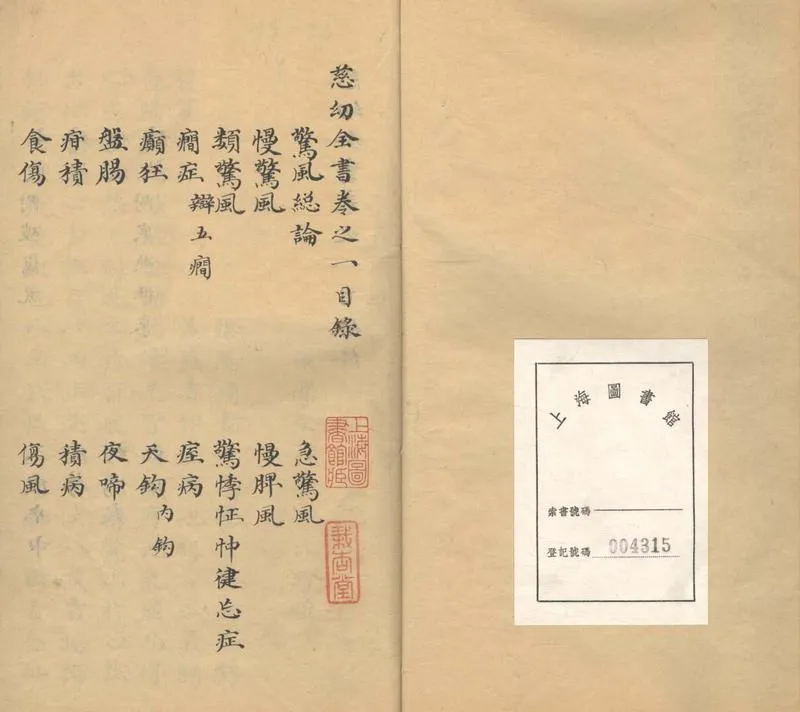 上海圖書館
索書號碼
登記號碼 004315
慈幼全書卷之一目錄
驚風総論 急驚風
慢驚風 慢脾風
類驚風 驚悸怔忡徤忘症
癇症 辯五癇 痓病
癲狂 天鈎 內鈎
盤腸 夜啼
疳積 積病
食傷 傷風
上海圖
書館藏
栽杏堂